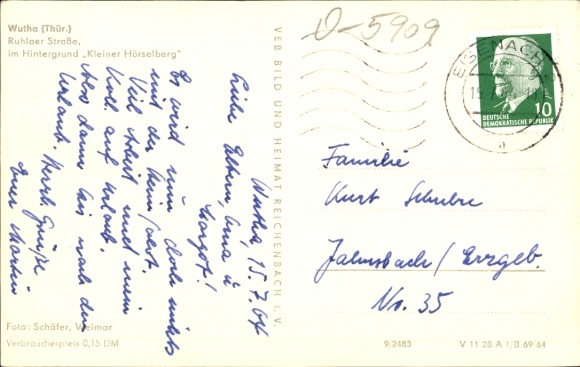 Wutha (Thür.)
Ruhlaer Straße,
im Hintergrund „Kleiner Hörselberg"
O-5909
VEB BILD UND HEIMAT REICHENBACH i. V.
EISENACH
15.7.
a
10
DEUTSCHE
DEMOKRATISCHE REPUBLIK
Wutha, 15.7.64
Liebe Eltern, Oma u.
Margot!
Es wird nun doch nichts
mit der
Viel Arbeit und mein
Koll. auf Urlaub.
Also dann bis nach dem
Urlaub. Herzl. Grüße
Euer Martin
Familie
Kurt Schubre
Jahnsbach/Erzgeb.
No. 35
Foto: Schäfer, Weimar
Verbraucherpreis 0,15 DM
9/2483
V 11 28 A 1/B 69/64